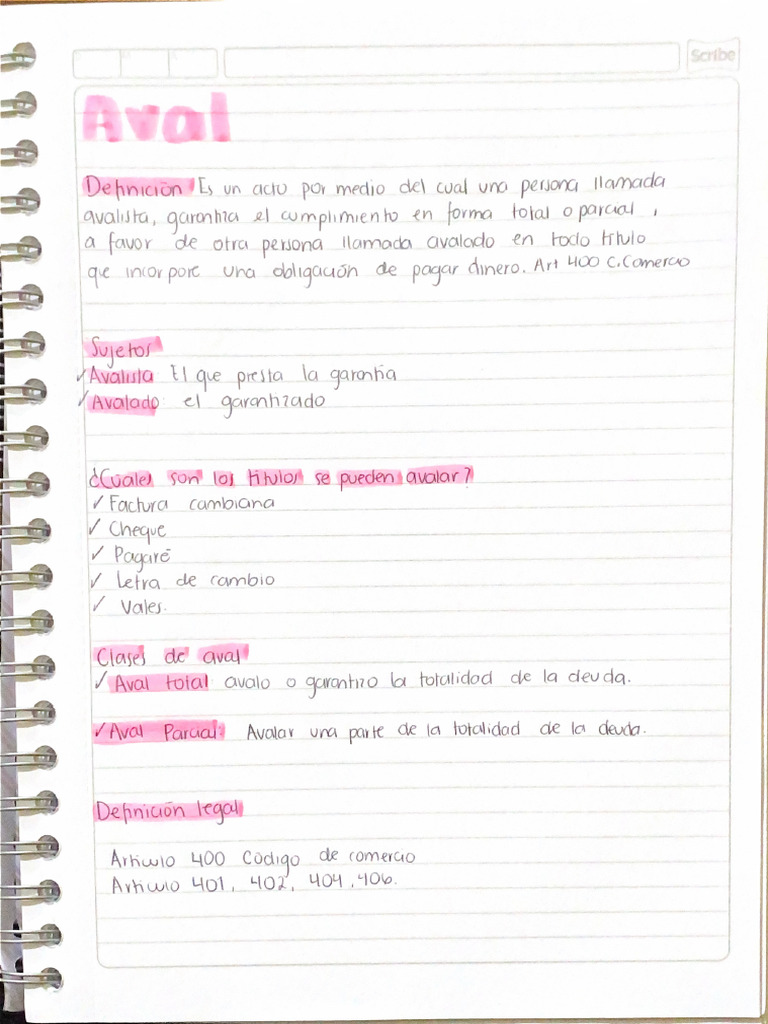 Scribe
Aval
Definición Es un acto por medio del cual una persona llamada
avalista, garantiza el cumplimiento en forma total o parcial,
a favor de otra persona llamada avalado en todo título
que incorpore una obligación de pagar dinero. Art 400 C.Comercio
Sujetos
✓ Avalista El que presta la garantía
✓ Avalado: el garantizado
¿Cuáles son los títulos se pueden avalar?
✓ Factura cambiaria
✓ Cheque
✓ Pagaré
✓ Letra de cambio
✓ Vales.
Clases de aval
✓ Aval total: avalo o garantizo la totalidad de la deuda.
✓ Aval Parcial: Avalar una parte de la totalidad de la deuda.
Definición legal
Artículo 400 Código de comercio
Artículo 401, 402, 404, 406.